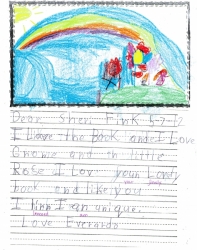 Dear Sheri Fink 5-7-12
I Love the Book and I Love
Gnome and th little
Rose I Lov your Lovely
book and like you
I am unique.
Love Everardo